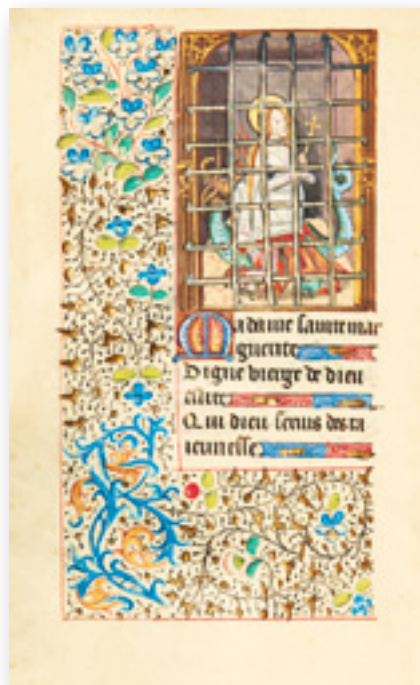 Madame sainte mar
guerite
Digne vierge de dieu
eslite
Qui dieu servis des ta
ieunesse